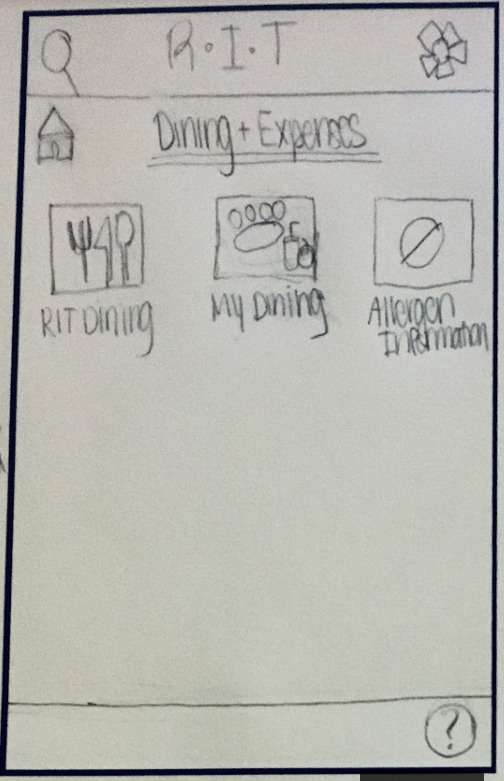 R·I·T
Dining + Expenses
RIT Dining
My Dining
Allergen
Information
?